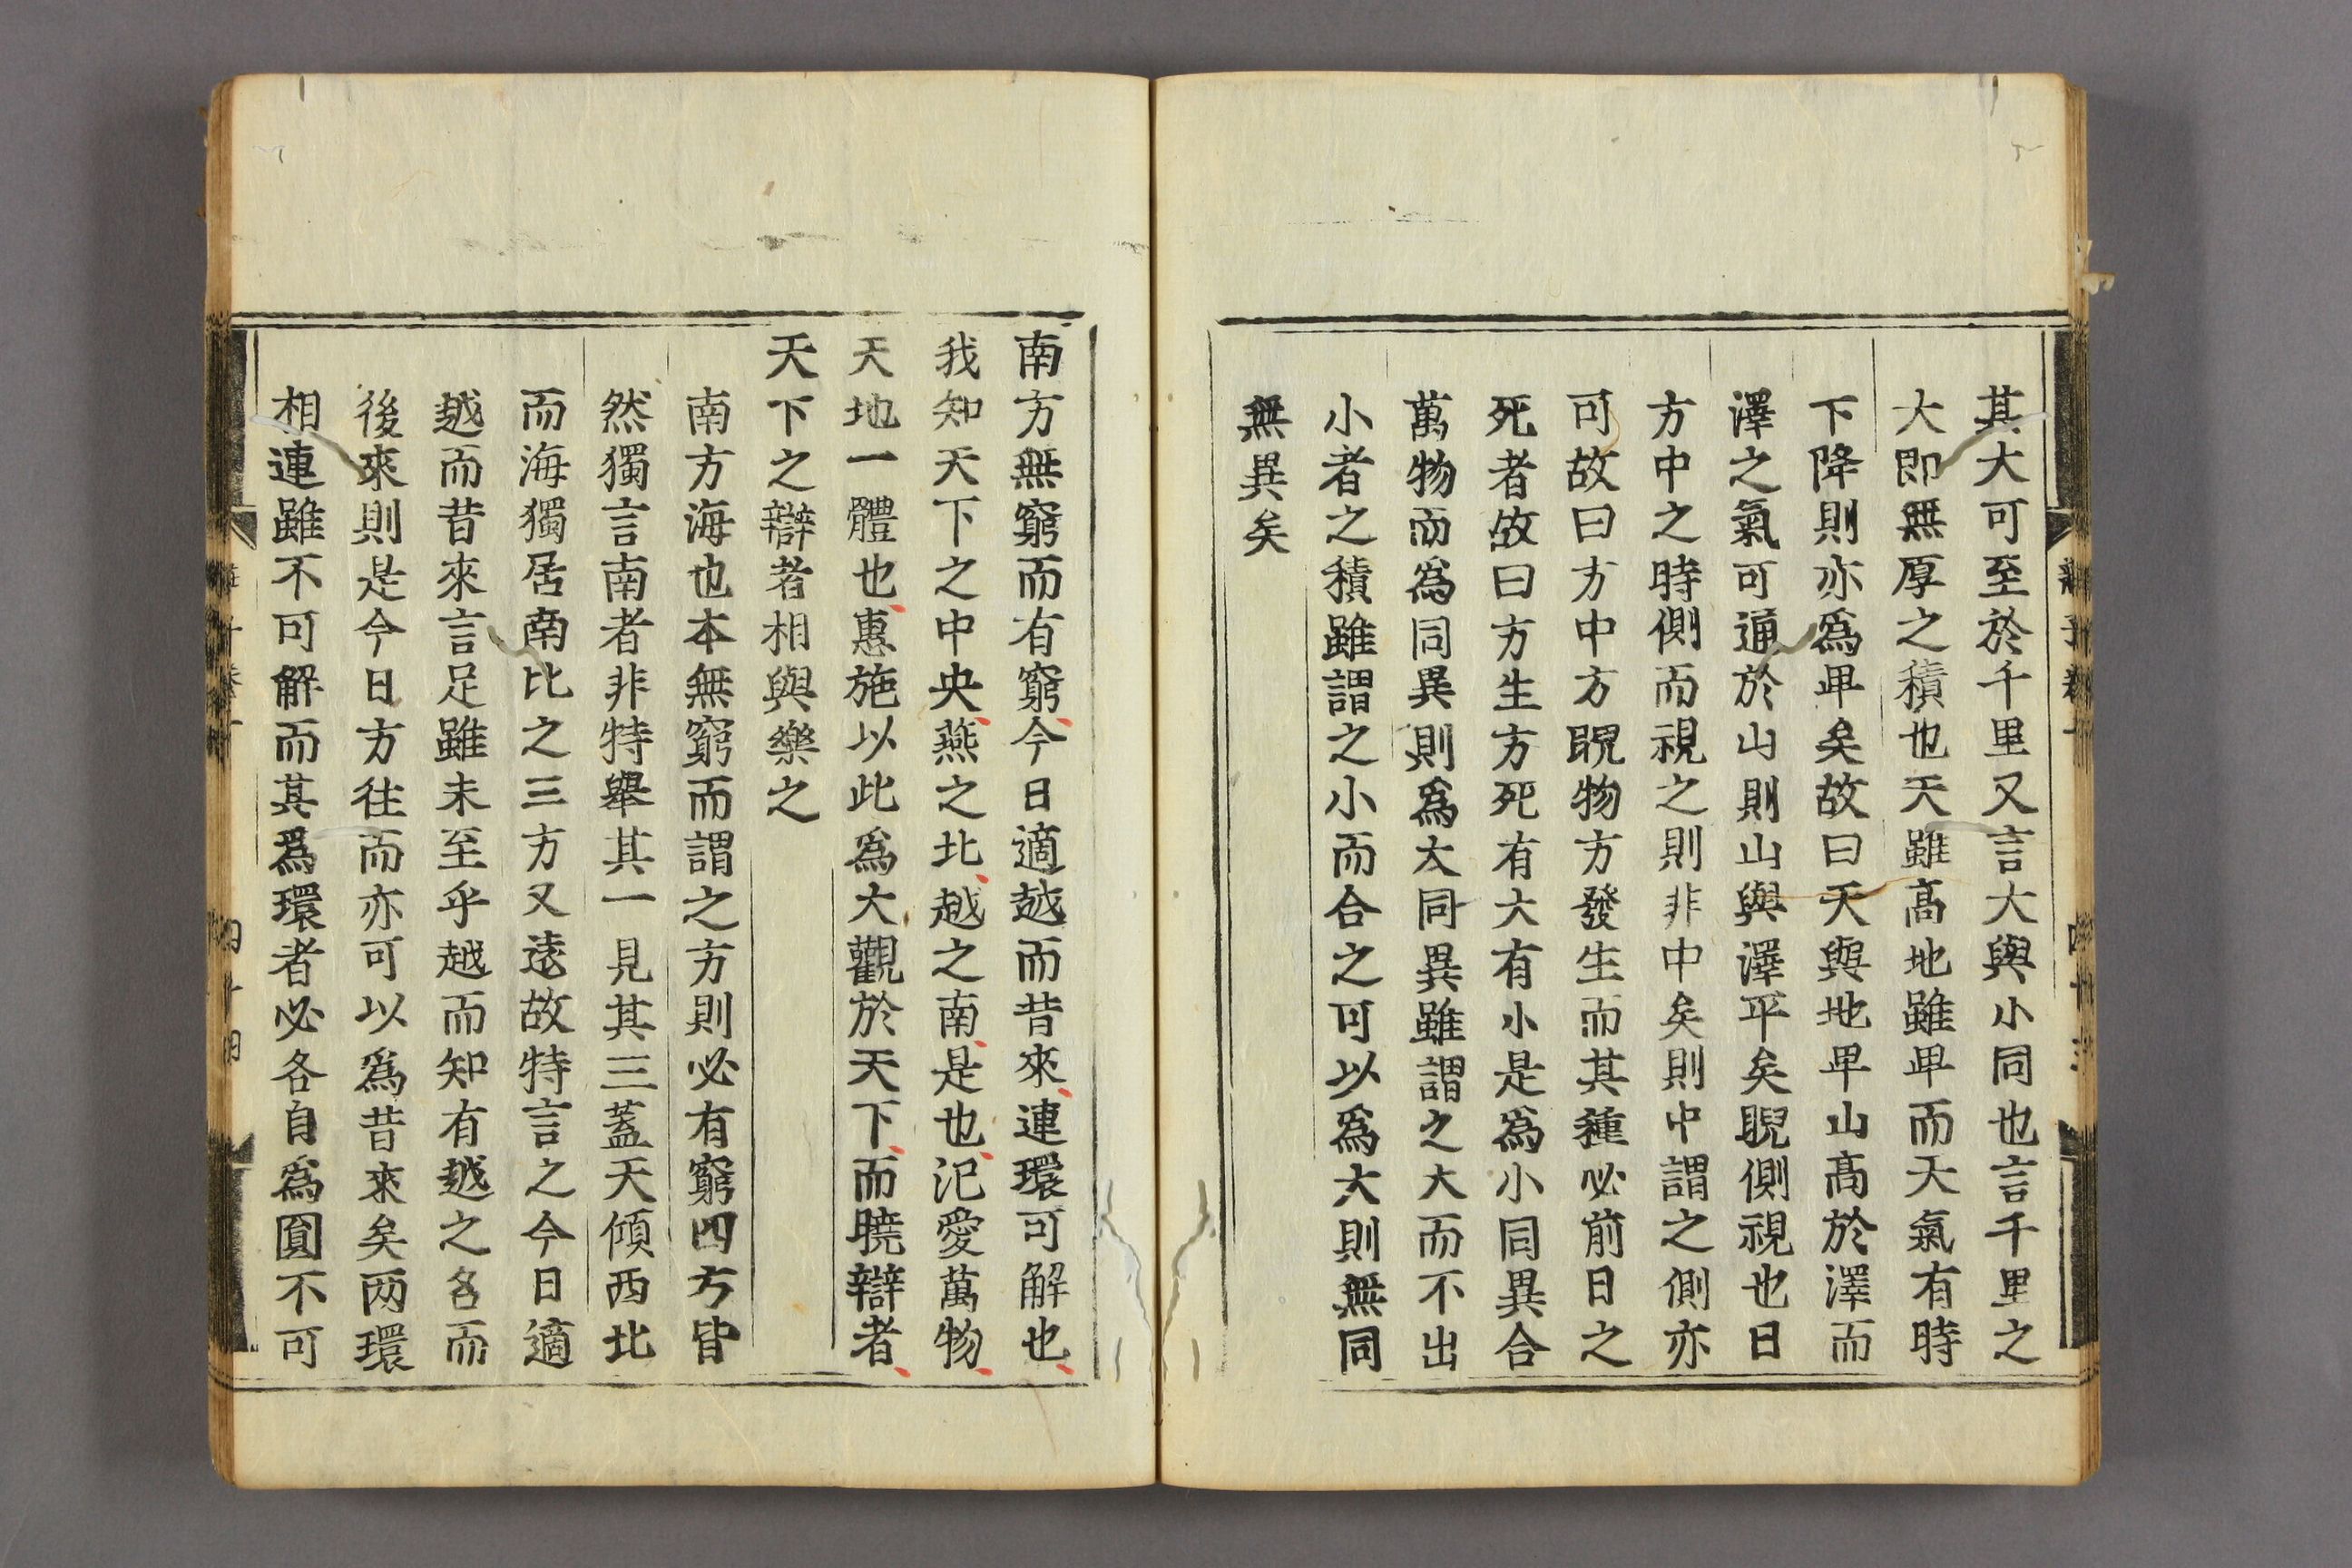 其大可至於千里又言大與小同也言千里之
大即無厚之積也天雖高地雖卑而天氣有時
下降則亦爲卑矣故曰天與地卑山高於澤而
澤之氣可通於山則山與澤平矣睨側視也日
方中之時側而視之則非中矣則中謂之側亦
可故曰方中方睨物方發生而其種必前日之
死者故曰方生方死有大有小是爲小同異合
萬物而爲同異則爲大同異雖謂之大而不出
小者之積雖謂之小而合之可以爲大則無同
無異矣
南方無窮而有窮今日適越而昔來連環可解也
我知天下之中央燕之北越之南是也氾愛萬物
天地一體也惠施以此爲大觀於天下而曉辯者
天下之辯者相與樂之
南方海也本無窮而謂之方則必有窮四方皆
然獨言南者非特舉其一見其三蓋天傾西北
而海獨居南比之三方又逺故特言之今日適
越而昔來言足雖未至乎越而知有越之名而
後來則是今日方往而亦可以爲昔來矣两環
相連雖不可解而其爲環者必各自爲圓不可
四十四